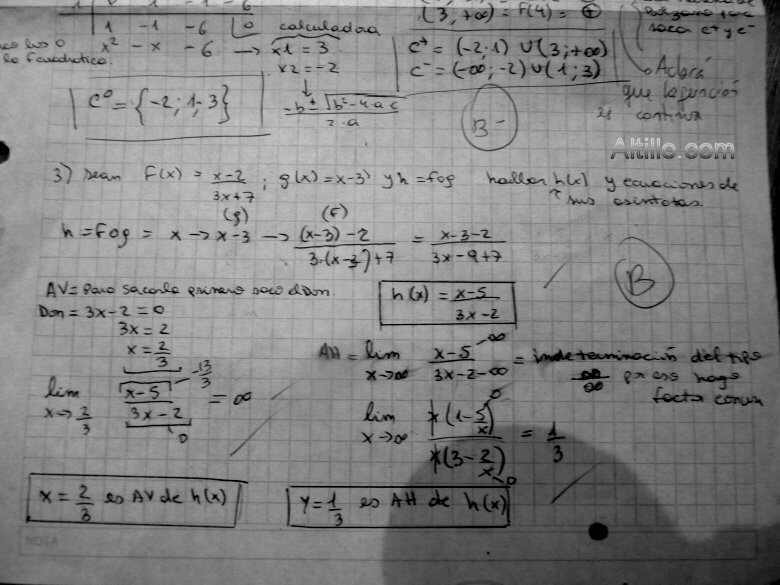 1 -1 -6 | 0 calculadora
x² - x - 6 → x1 = 3
x2 = -2
-b ± √b²-4·a·c
2·a
C⁰ = {-2; 1; 3}
(3; +∞) = F(4) = ⊕
C⁺ = (-2; 1) ∪ (3; +∞)
C⁻ = (-∞; -2) ∪ (1; 3)
saca C⁺ y C⁻
Aclará
que la función
es continua
B-
Altillo.com
3) sean F(x) = x-2 / 3x+7 ; g(x) = x-3 y h = fog hallar h(x) y ecuaciones de
sus asintotas.
(g) (F)
h = Fog = x → x-3 → (x-3) - 2 / 3·(x-3)+7 = x-3-2 / 3x-9+7
B
AV = Para sacarla primero saco el Dom.
h(x) = x-5 / 3x-2
Dom = 3x-2 = 0
3x = 2
x = 2/3
lim x→2/3 x-5 / 3x-2 = ∞
-13/3
0
AH = lim x→∞ x-5 / 3x-2 = indeterminación del tipo
∞/∞ hago
factor comun
lim x→∞ x(1-5/x) / x(3-2/x) = 1/3
x = 2/3 es AV de h(x)
y = 1/3 es AH de h(x)
NOTA